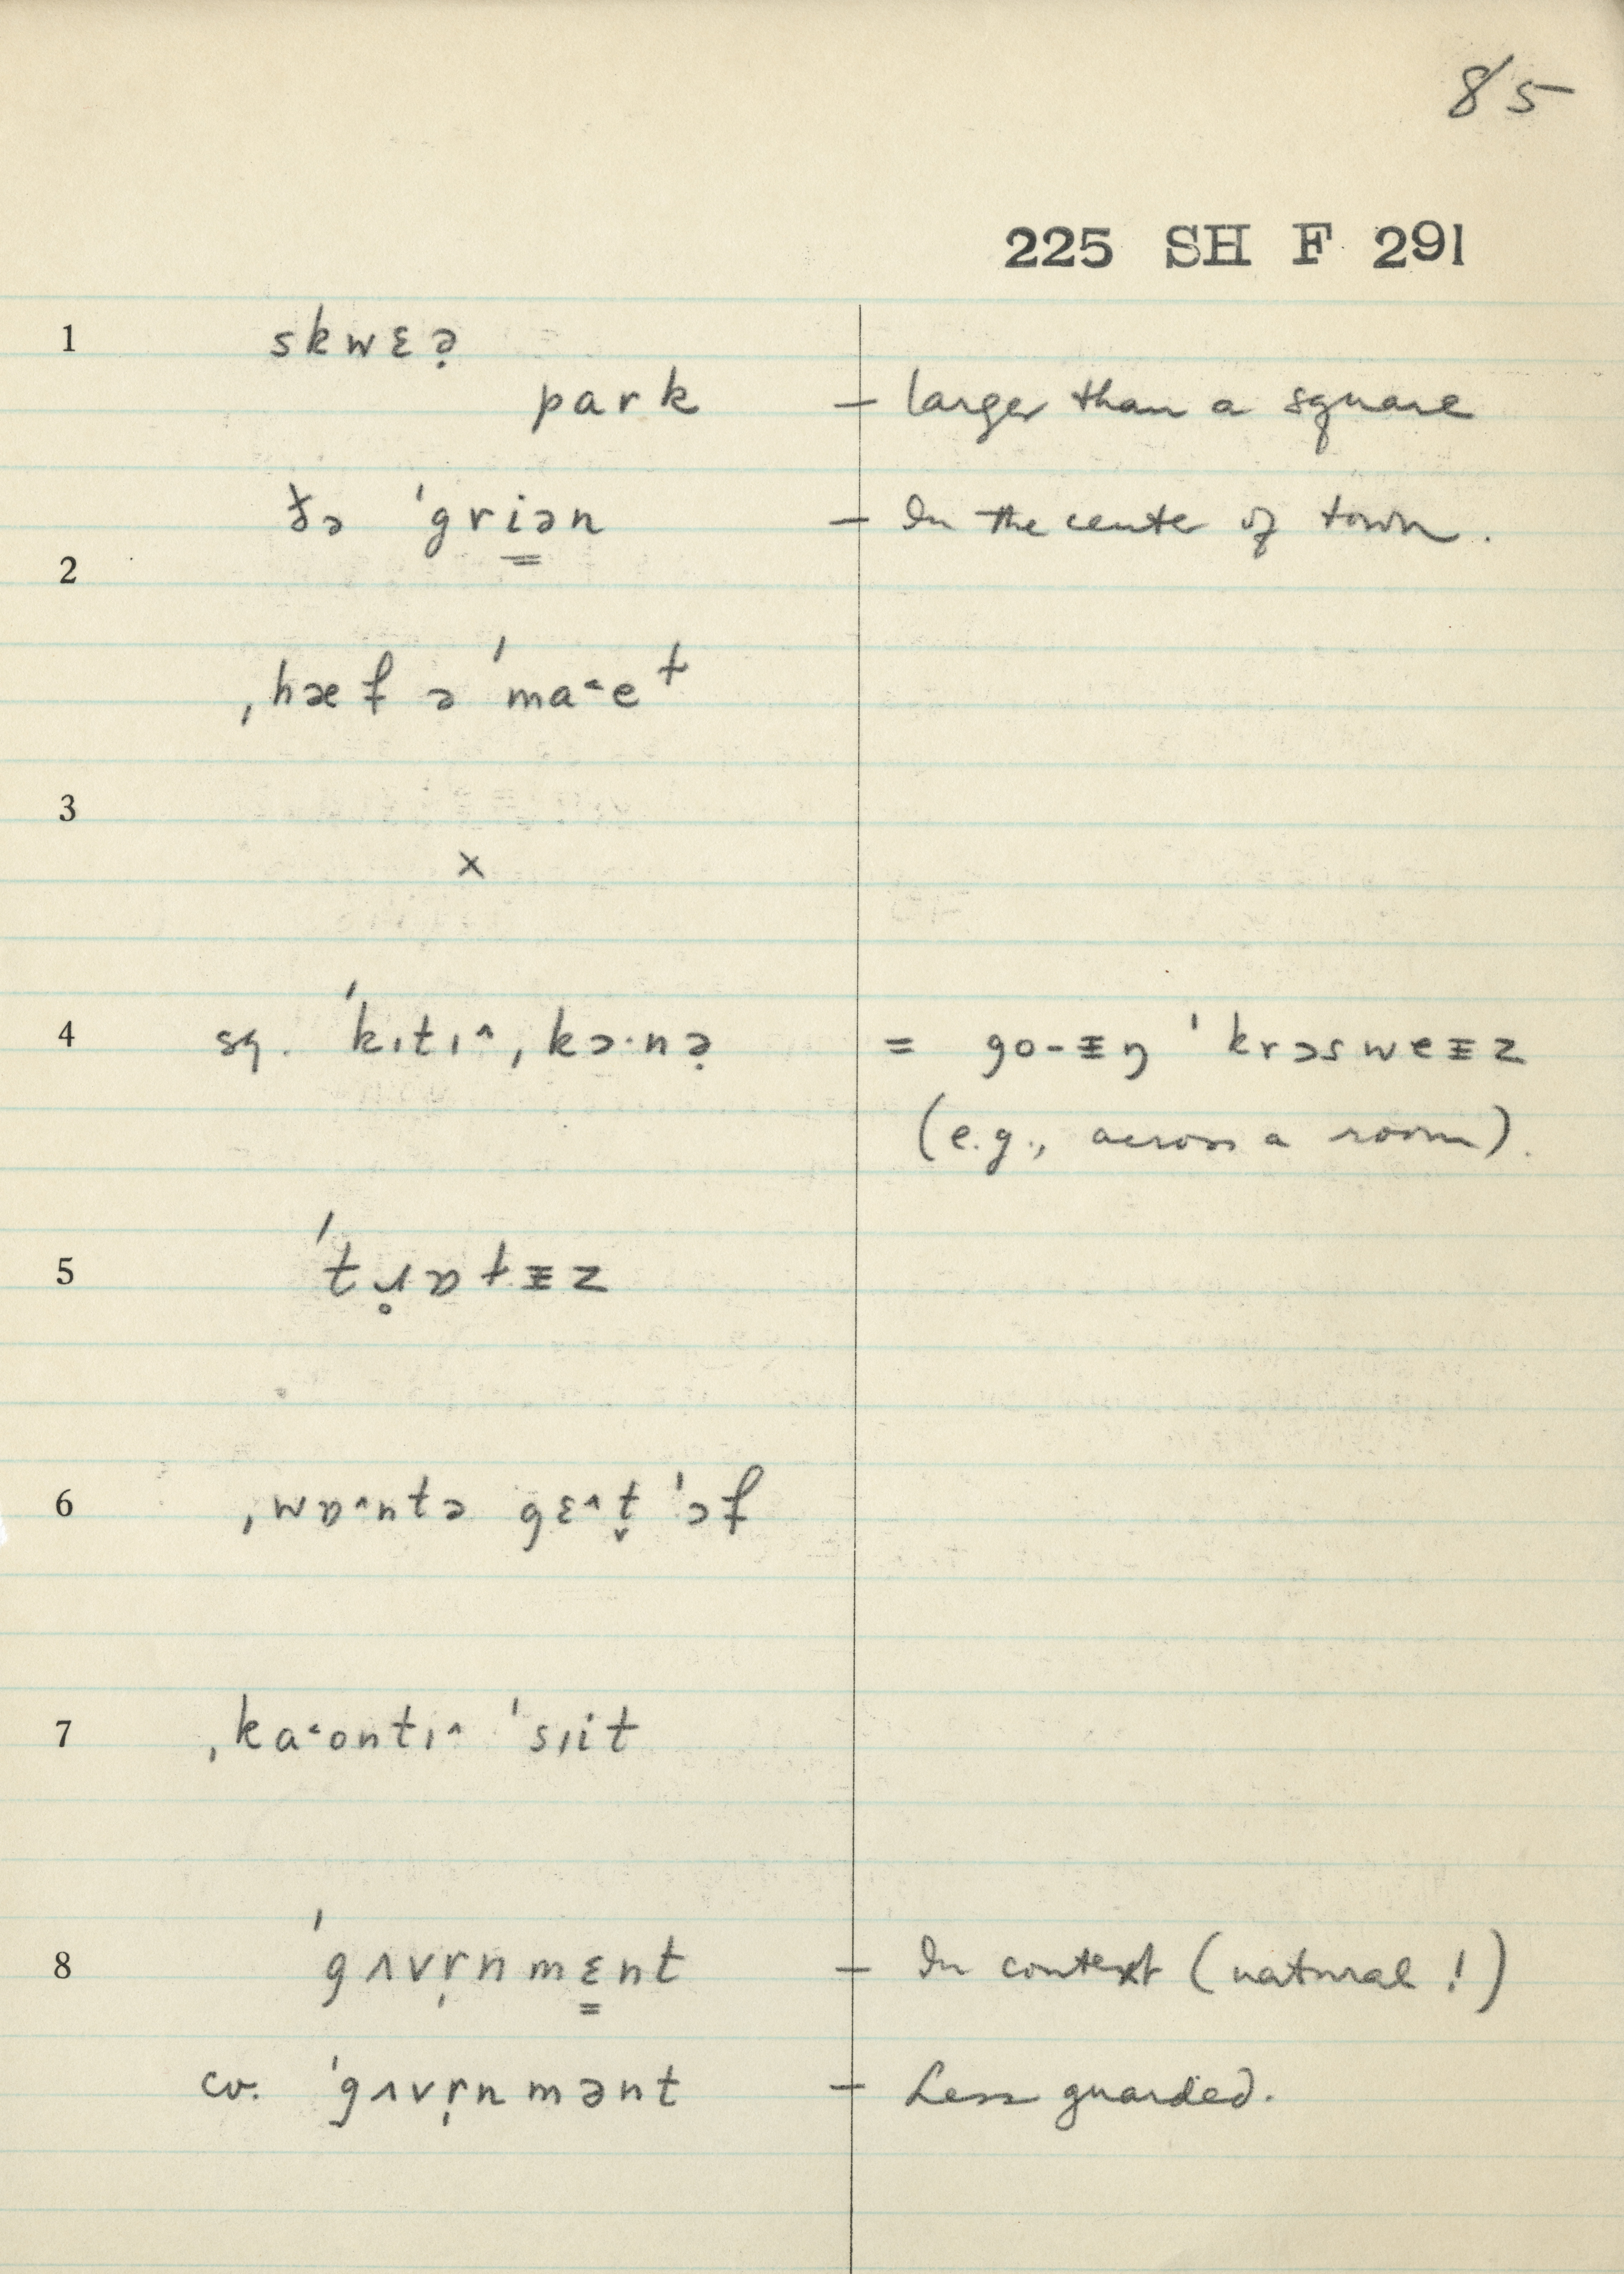 85
225 SH F 291
1 skwɛə̣
park – larger than a square
ðə ˈgri̳ən – In the center of town.
2
ˌhæf ə ˈma˂eᵗ
3
×
4 sq. ˈkɪtɪ˄ˌkɔ·nə̣ = go-ɪŋ ˈkrɔsweɪz
(e.g., across a room).
5 ˈtɹ̥ɒtɪz
6 ˌwɒ˄ntə gɛ˄t̬ ˈɔf
7 ˌka˂ontɪ˄ ˈsɪit
8 ˈgʌvr̩nmɛ̳nt – In context (natural!)
cv. ˈgʌvr̩nmənt – Less guarded.